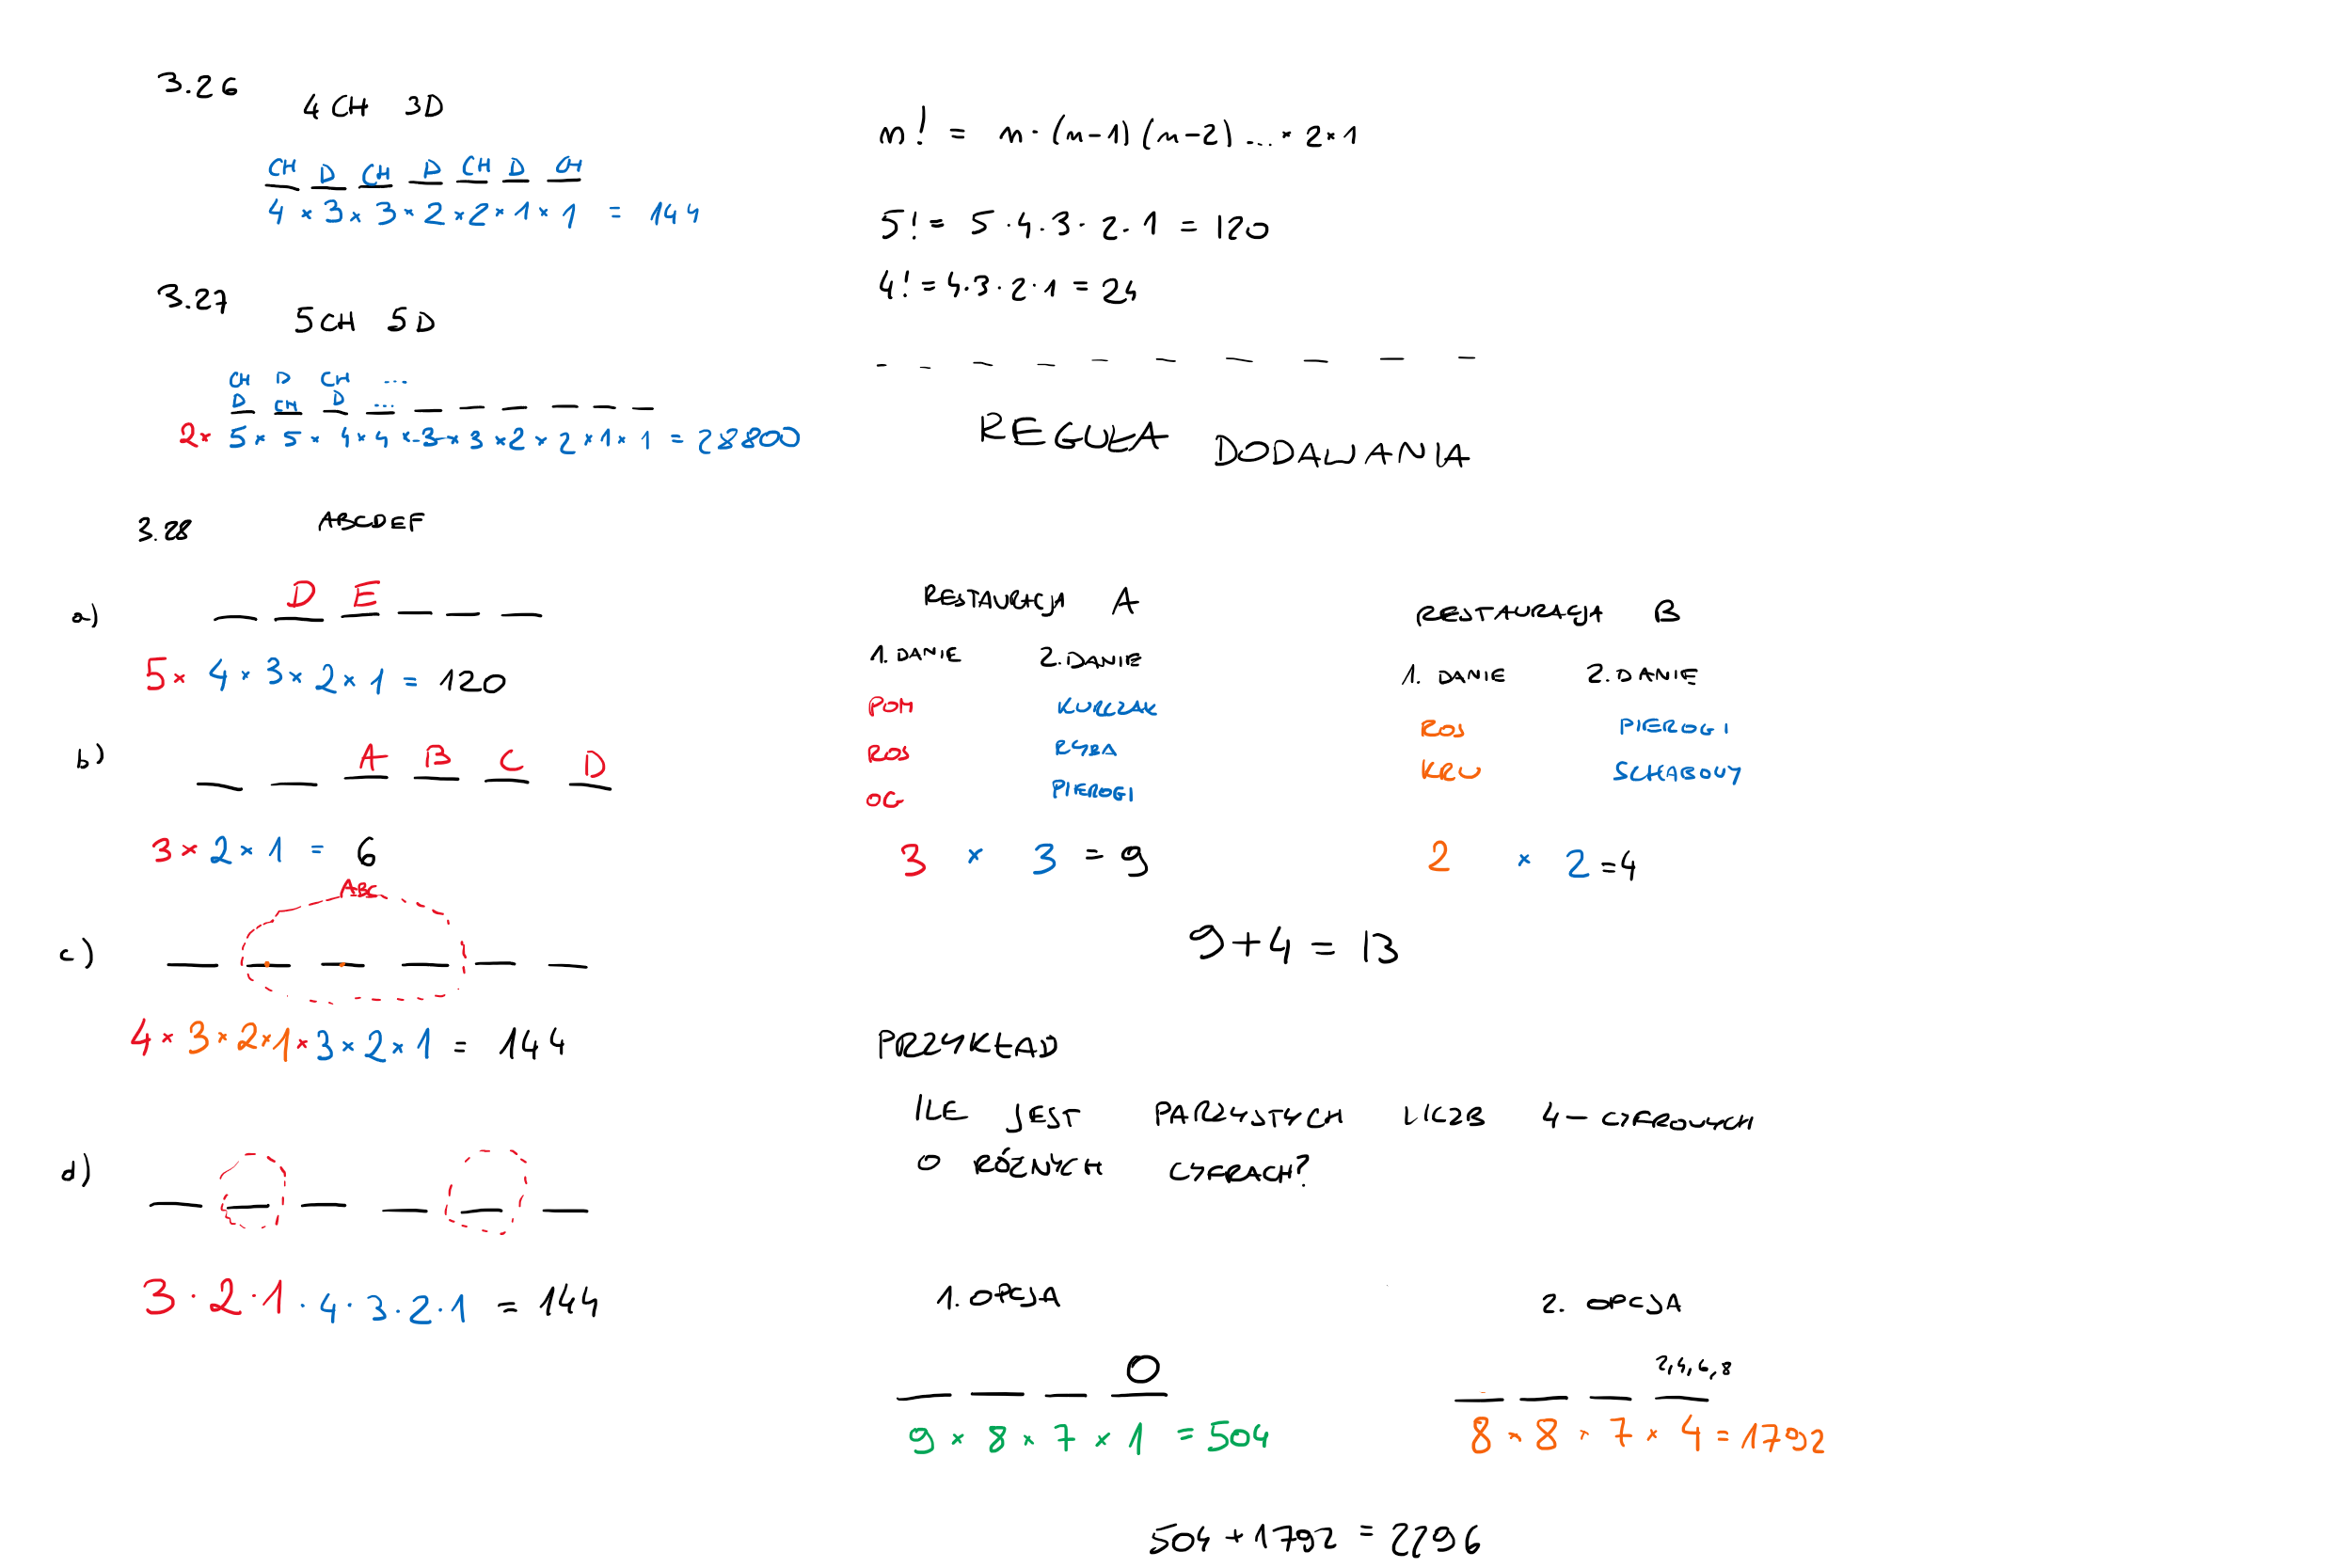 3.26
4 CH 3D
CH D CH D CH D CH
4 × 3 × 3 × 2 × 2 × 1 × 1 = 144
3.27
5CH 5D
CH D CH ...
D CH D ...
2 × 5 × 5 × 4 × 4 × 3 × 3 × 2 × 2 × 1 × 1 = 28800
3.28 ABCDEF
a) D E
5 × 4 × 3 × 2 × 1 = 120
b) A B C D
3 × 2 × 1 = 6
ABC
c)
4 × 3 × 2 × 1 × 3 × 2 × 1 = 144
d)
3 · 2 · 1 · 4 · 3 · 2 · 1 = 144
n! = n · (n-1) (n-2) ... × 2 × 1
5! = 5 · 4 · 3 · 2 · 1 = 120
4! = 4 · 3 · 2 · 1 = 24
REGUŁA DODAWANIA
RESTAURACJA A
1. DANIE 2. DANIE
POM KURCZAK
ROS RYBA
OG PIEROGI
3 × 3 = 9
RESTAURACJA B
1. DANIE 2. DANIE
ROS PIEROGI
KRU SCHABOWY
2 × 2 = 4
9 + 4 = 13
PRZYKŁAD
ILE JEST PARZYSTYCH LICZB 4 – CYFROWYCH
O RÓŻNYCH CYFRACH?
1. OPCJA
0
9 × 8 × 7 × 1 = 504
2. OPCJA
2,4,6,8
8 × 8 × 7 × 4 = 1792
504 + 1792 = 2296